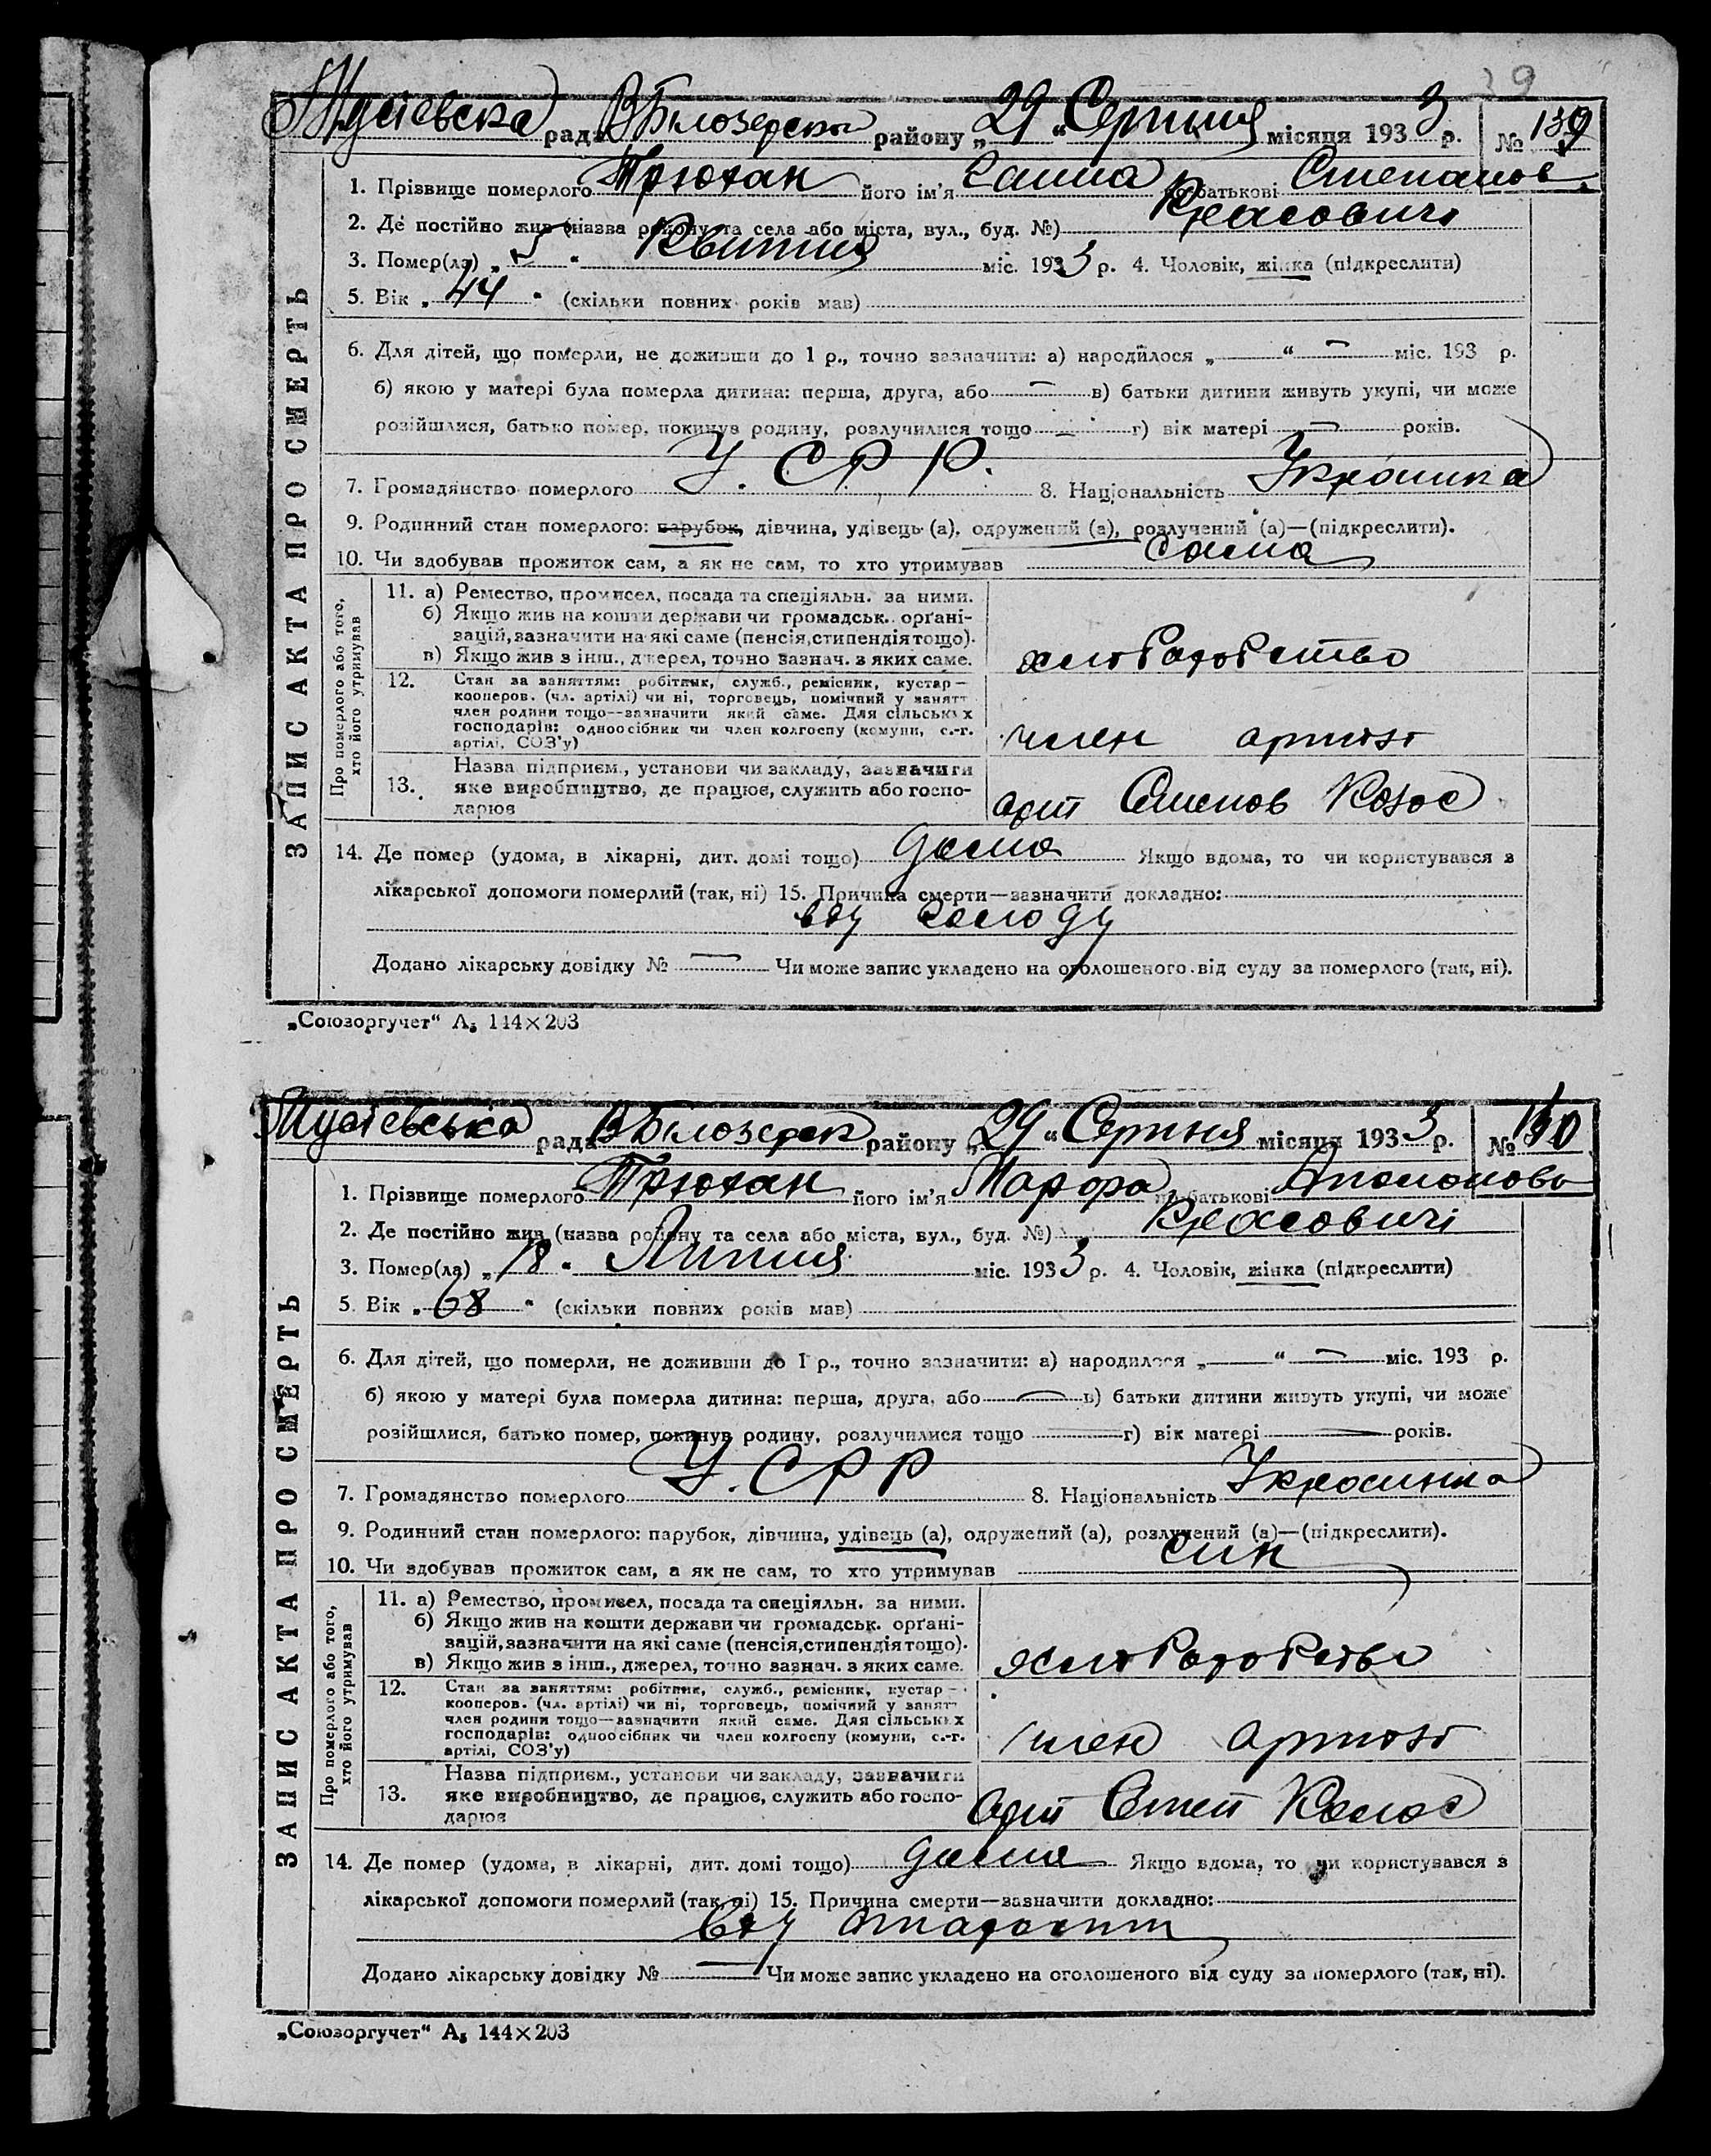 39
Мусіевска рада В Білозерськ району „29“ Серпыня місяця 1933 р. № 139
1. Прізвище померлого Трюхан його ім’я Ганна по батькові Степанов.
2. Де постійно жив (назва району та села або міста, вул., буд. №) Красовичі
3. Помер(ла) „5“ Квитня міс. 1933 р. 4. Чоловік, жінка (підкреслити)
5. Вік „44“ (скільки повних років мав)
6. Для дітей, що померли, не доживши до 1 р., точно зазначити: а) народилося „—“ — міс. 193 р.
б) якою у матері була померла дитина: перша, друга, або — в) батьки дитини живуть укупі, чи може
розійшлися, батько помер, покинув родину, розлучилися тощо — г) вік матері — років.
7. Громадянство померлого У. С Р Р. 8. Національність Украинка
9. Родинний стан померлого: парубок, дівчина, удівець (а), одружений (а), розлучений (а)—(підкреслити).
10. Чи здобував прожиток сам, а як не сам, то хто утримував сама
ЗАПИС АКТА ПРО СМЕРТЬ
Про померлого або того,
хто його утримував
11. а) Ремество, промисел, посада та спеціяльн. за ними.
б) Якщо жив на кошти держави чи громадськ. орґані-
зацій, зазначити на які саме (пенсія, стипендія тощо).
в) Якщо жив з інш., джерел, точно зазнач. з яких саме. хлеборобство
12. Стан за заняттям: робітник, служб., ремісник, кустар—
кооперов. (чл. артілі) чи ні, торговець, помічний у занятт
член родини тощо—зазначити який саме. Для сільських
господарів: одноосібник чи член колгоспу (комуни, с.-г.
артілі, СОЗ’у) член артілі
13. Назва підприєм., установи чи закладу, зазначити
яке виробництво, де працює, служить або госпо-
дарює арт Степов Колос
14. Де помер (удома, в лікарні, дит. домі тощо) дома Якщо вдома, то чи користувався з
лікарської допомоги померлий (так, ні) 15. Причина смерти—зазначити докладно:
від голоду
Додано лікарську довідку № — Чи може запис укладено на оголошеного від суду за померлого (так, ні).
„Союзоргучет“ А5 144×203
Мусіевська рада В Білозерськ району „29“ Серпня місяця 1933 р. № 140
1. Прізвище померлого Трюхан його ім’я Марфа по батькові
2. Де постійно жив (назва району та села або міста, вул., буд. №) Красовичі
3. Помер(ла) „18“ Липня міс. 1933 р. 4. Чоловік, жінка (підкреслити)
5. Вік „68“ (скільки повних років мав)
6. Для дітей, що померли, не доживши до 1 р., точно зазначити: а) народилося „—“ — міс. 193 р.
б) якою у матері була померла дитина: перша, друга, або — в) батьки дитини живуть укупі, чи може
розійшлися, батько помер, покинув родину, розлучилися тощо — г) вік матері — років.
7. Громадянство померлого У. С Р Р 8. Національність Украинка
9. Родинний стан померлого: парубок, дівчина, удівець (а), одружений (а), розлучений (а)—(підкреслити).
10. Чи здобував прожиток сам, а як не сам, то хто утримував син
ЗАПИС АКТА ПРО СМЕРТЬ
Про померлого або того,
хто його утримував
11. а) Ремество, промисел, посада та спеціяльн. за ними.
б) Якщо жив на кошти держави чи громадськ. орґані-
зацій, зазначити на які саме (пенсія, стипендія тощо).
в) Якщо жив з інш., джерел, точно зазнач. з яких саме. хлеборобство
12. Стан за заняттям: робітник, служб., ремісник, кустар—
кооперов. (чл. артілі) чи ні, торговець, помічний у занятт
член родини тощо—зазначити який саме. Для сільських
господарів: одноосібник чи член колгоспу (комуни, с.-г.
артілі, СОЗ’у) член артілі
13. Назва підприєм., установи чи закладу, зазначити
яке виробництво, де працює, служить або госпо-
дарює Арт Степ Колос
14. Де помер (удома, в лікарні, дит. домі тощо) дома Якщо вдома, то чи користувався з
лікарської допомоги померлий (так, ні) 15. Причина смерти—зазначити докладно:
від старости
Додано лікарську довідку № — Чи може запис укладено на оголошеного від суду за померлого (так, ні).
„Союзоргучет“ А5 144×203